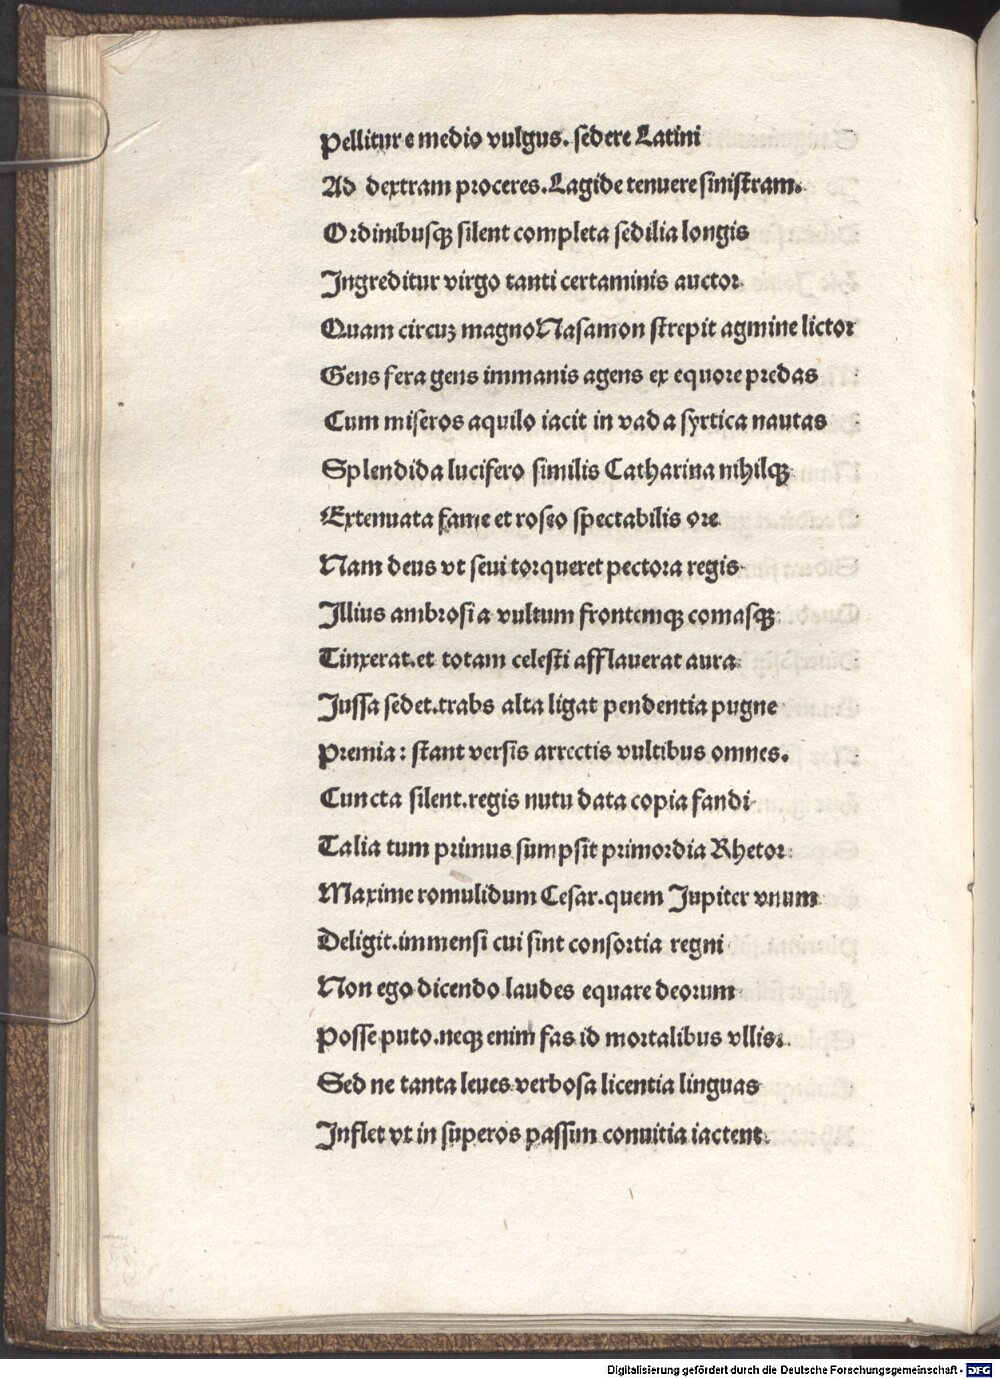 Pellitur e medio vulgus. sedere Latini
Ad dextram proceres. Lagide tenuere sinistram.
Ordinibusqꝫ silent completa sedilia longis
Ingreditur virgo tanti certaminis auctor
Quam circuꝫ magno Nasamon strepit agmine lictor
Gens fera gens immanis agens ex equore predas
Cum miseros aquilo iacit in vada syrtica nautas
Splendida lucifero similis Catharina nihilqꝫ
Extenuata fame et roseo spectabilis ore
Nam deus vt seui torqueret pectora regis
Illius ambrosia vultum frontemqꝫ comasqꝫ
Tinxerat. et totam celesti afflauerat aura
Jussa sedet. trabs alta ligat pendentia pugne
Premia: stant versis arrectis vultibus omnes.
Cuncta silent. regis nutu data copia fandi
Talia tum primus sumpsit primordia Rhetor
Maxime romulidum Cesar. quem Jupiter vnum
Deligit. immensi cui sint consortia regni
Non ego dicendo laudes equare deorum
Posse puto. neqꝫ enim fas id mortalibus vllis.
Sed ne tanta leues verbosa licentia linguas
Inflet vt in superos passim conuitia iactent.
Digitalisierung gefördert durch die Deutsche Forschungsgemeinschaft - DFG